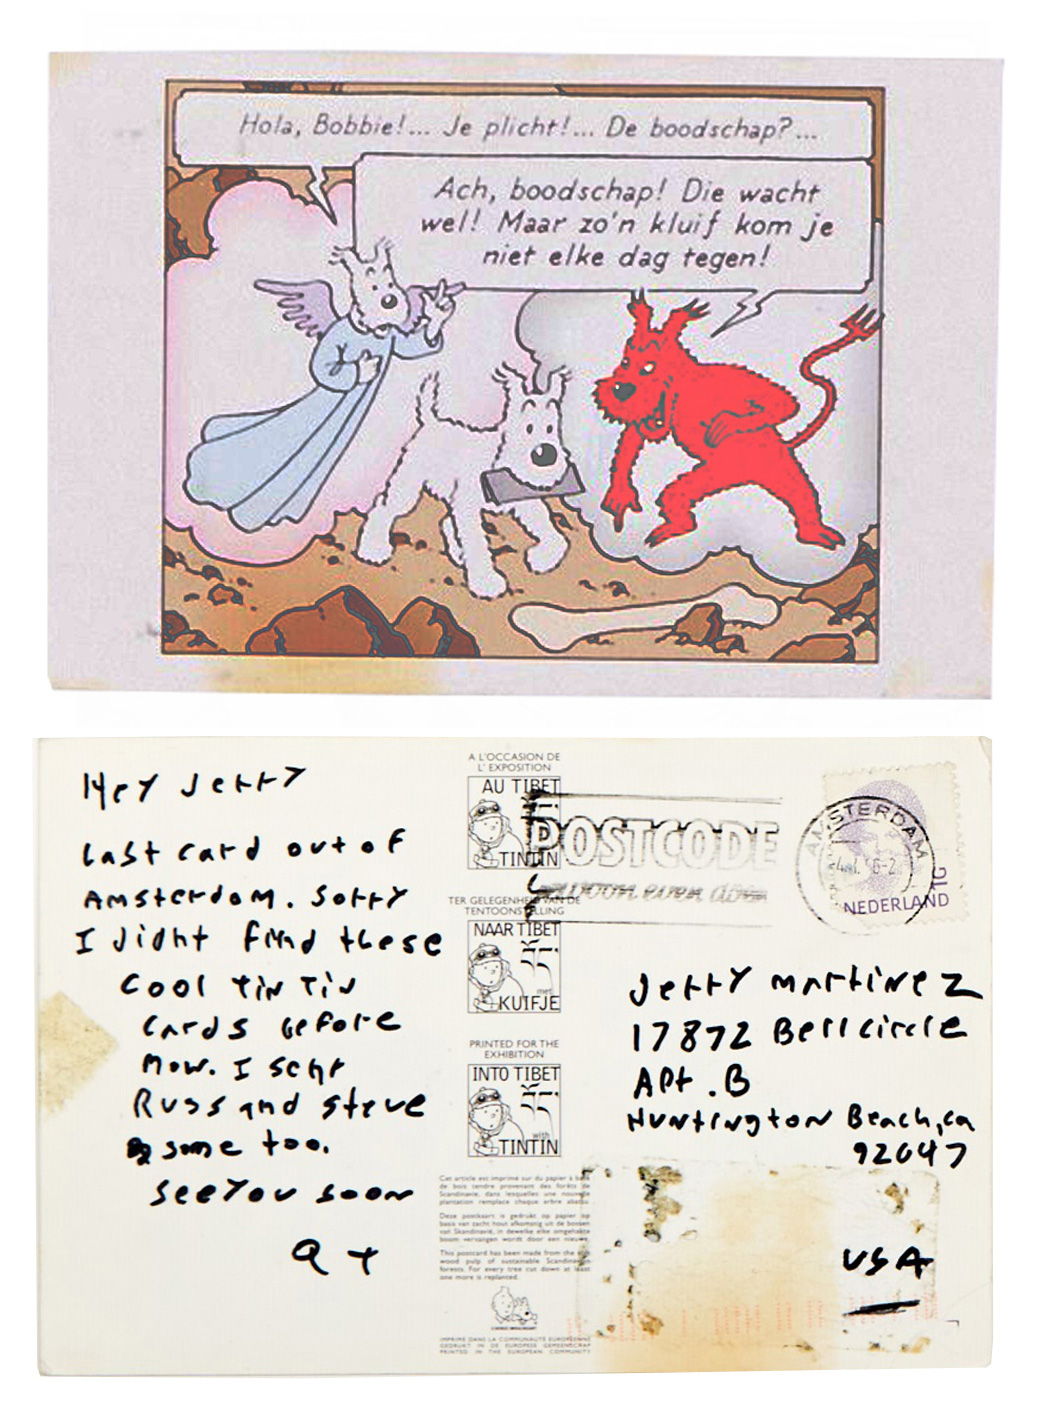 Hola, Bobbie!... Je plicht!... De boodschap?...
Ach, boodschap! Die wacht
wel! Maar zo'n kluif kom je
niet elke dag tegen!
Hey Jerry
Last card out of
Amsterdam. Sorry
I didnt find these
Cool Tin Tin
Cards before
Now. I sent
Russ and Steve
some too.
See You soon
Q +
A L'OCCASION DE
L'EXPOSITION
AU TIBET
TINTIN
TER GELEGENHEID VAN DE
TENTOONSTELLING
NAAR TIBET
met
KUIFJE
PRINTED FOR THE
EXHIBITION
INTO TIBET
with
TINTIN
Cet article est imprimé sur du papier à base
de bois tendre provenant des forêts de
Scandinavie, dans lesquelles une nouvelle
plantation remplace chaque arbre abattu.
Deze postkaart is gedrukt op papier op
basis van zacht hout afkomstig uit de bossen
van Skandinavië, in dewelke elke omgehakte
boom vervangen wordt door een nieuwe.
This postcard has been made from the
wood pulp of sustainable Scandinavian
forests. For every tree cut down at least
one more is replanted.
IMPRIMÉ DANS LA COMMUNAUTÉ EUROPÉENNE
GEDRUKT IN DE EUROPESE GEMEENSCHAP
PRINTED IN THE EUROPEAN COMMUNITY
POSTCODE
AMSTERDAM
NEDERLAND
Jerry Martinez
17872 Bell circle
Apt. B
Huntington Beach, ca
92647
USA